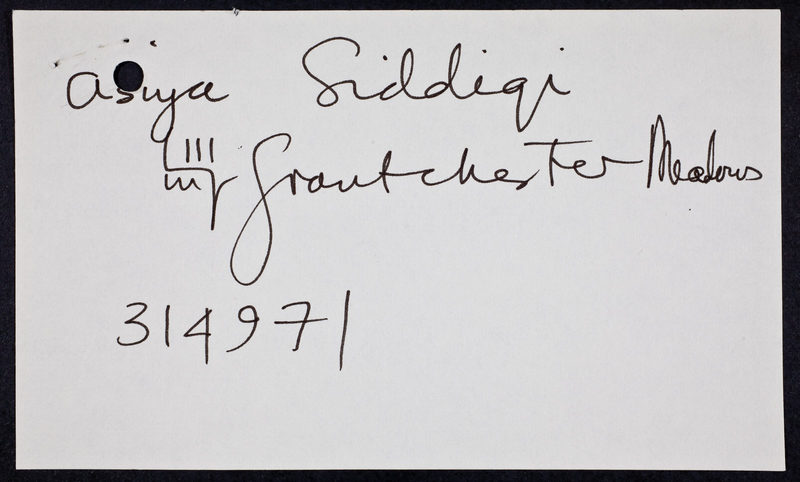 Asiya Siddiqi
111 Grantchester Meadows
314971